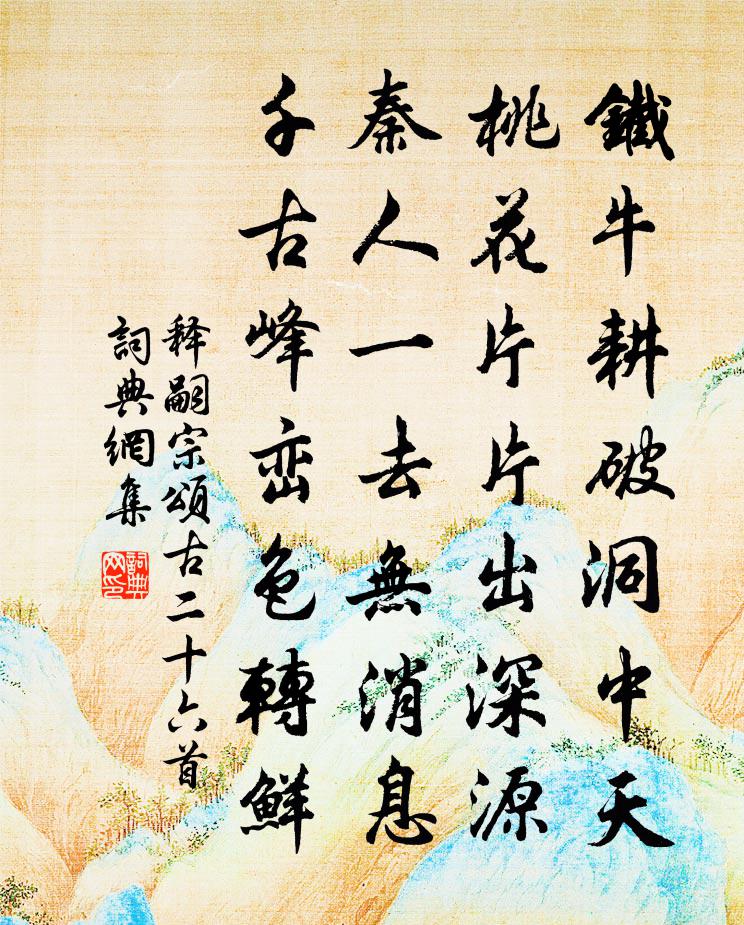 鐵牛耕破洞中天
桃花片片出深源
秦人一去無消息
千古峰巒色轉鮮
释嗣宗頌古二十六首
詞典網集
詞典网印